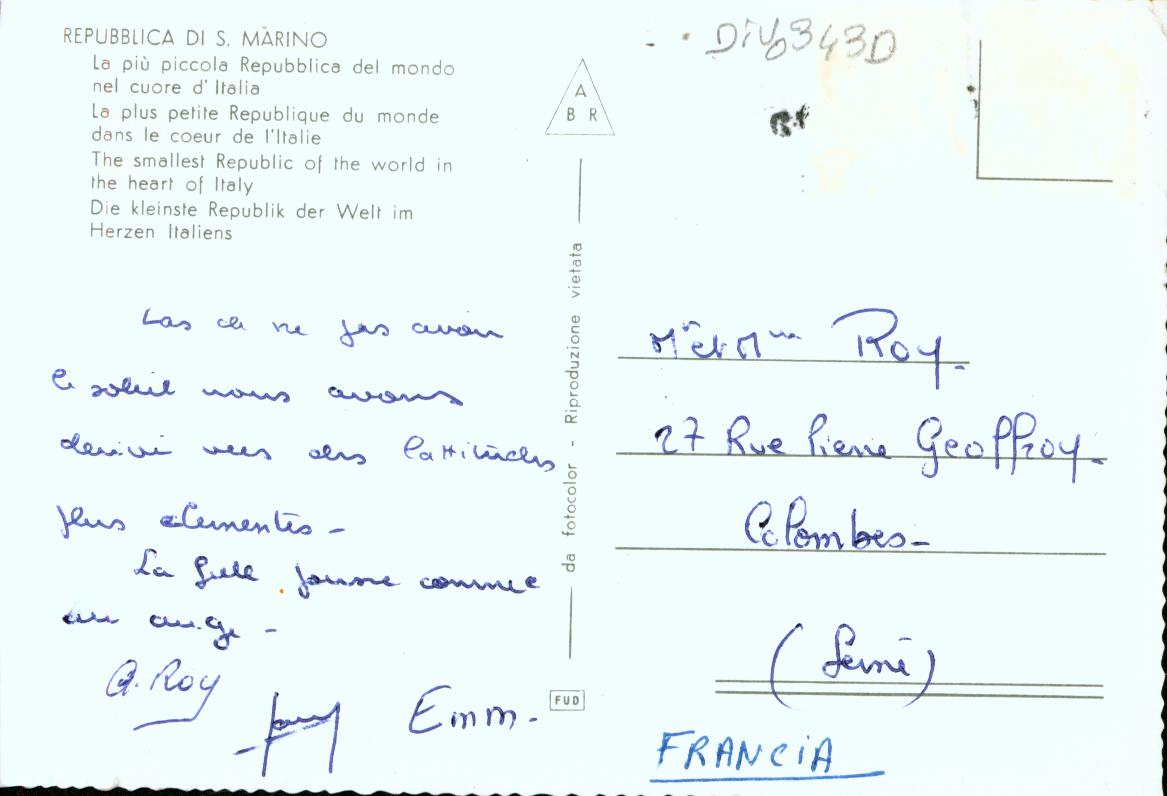 REPUBBLICA DI S. MARINO
La più piccola Repubblica del mondo
nel cuore d'Italia
La plus petite Republique du monde
dans le coeur de l'Italie
The smallest Republic of the world in
the heart of Italy
Die kleinste Republik der Welt im
Herzen Italiens
Las de ne pas avoir
le soleil nous avons
derivé vers des lattitudes
plus clementes -
La fille pousse comme
un ange -
G. Roy
Emm -
A
B R
da fotocolor - Riproduzione vietata
FUD
Div 343D
Mr et Mme Roy -
27 Rue Pierre Geoffroy -
Colombes -
(Seine)
FRANCIA